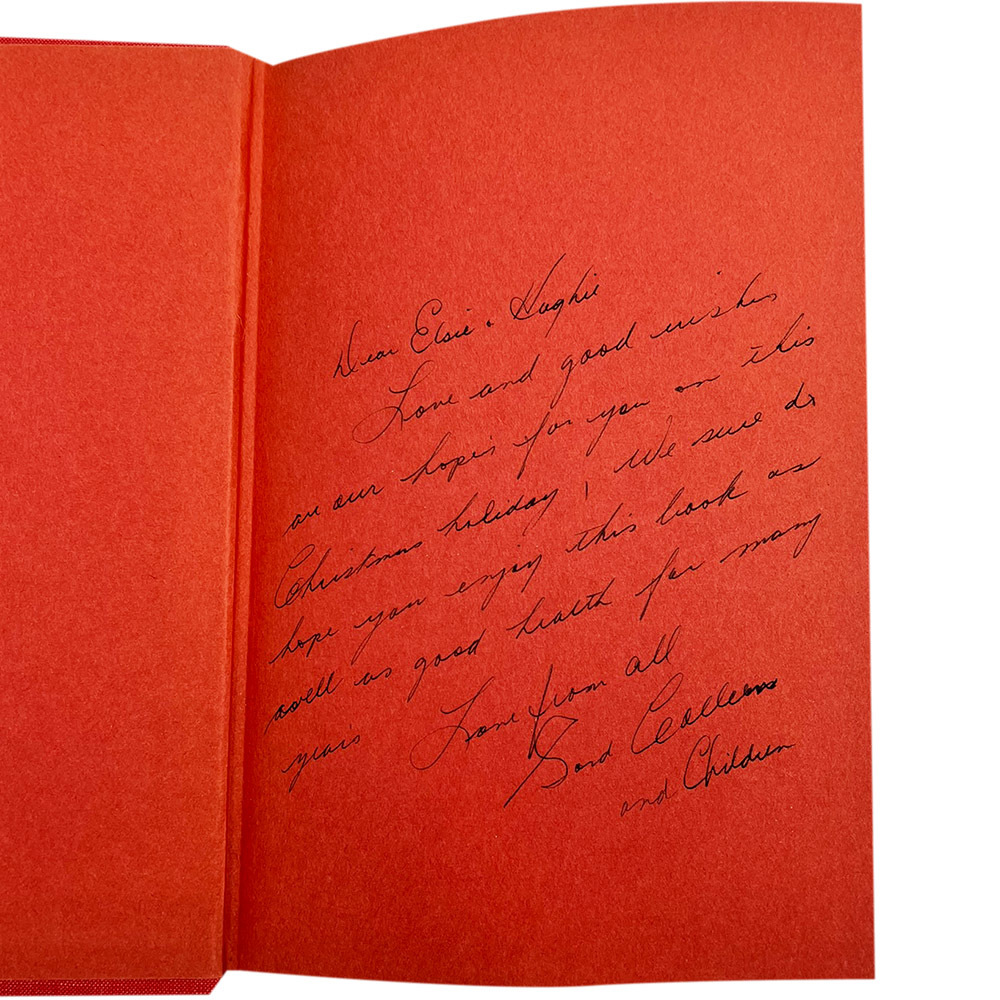 Dear Elsie & Hughie
Love and good wishes
are our hopes for you on this
Christmas holiday! We sure do
hope you enjoy this book as
well as good health for many
years Love from all
Colleen
and Children